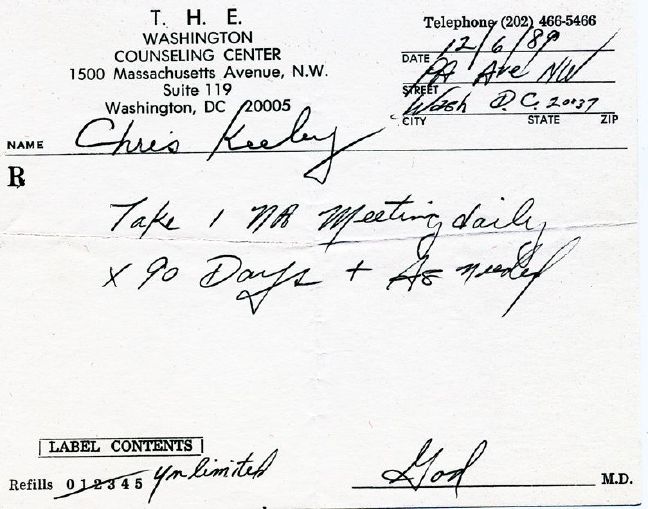 T. H. E.
WASHINGTON
COUNSELING CENTER
1500 Massachusetts Avenue, N.W.
Suite 119
Washington, DC 20005
Telephone (202) 466-5466
12/6/89
DATE
PA Ave NW
STREET
Wash D.C. 20037
CITY STATE ZIP
NAME Chris Keeley
R
Take 1 NA Meeting daily
x 90 Days + As needed
LABEL CONTENTS
Refills 0 1 2 3 4 5 Unlimited
God M.D.